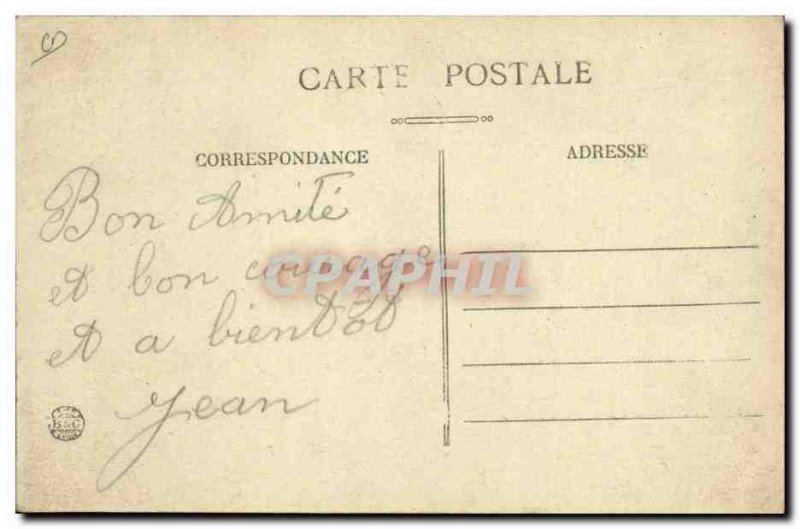 CARTE POSTALE
CORRESPONDANCE
ADRESSE
Bon Amitié
et bon courage
et a bientôt
Jean
B&C
CPAPHIL